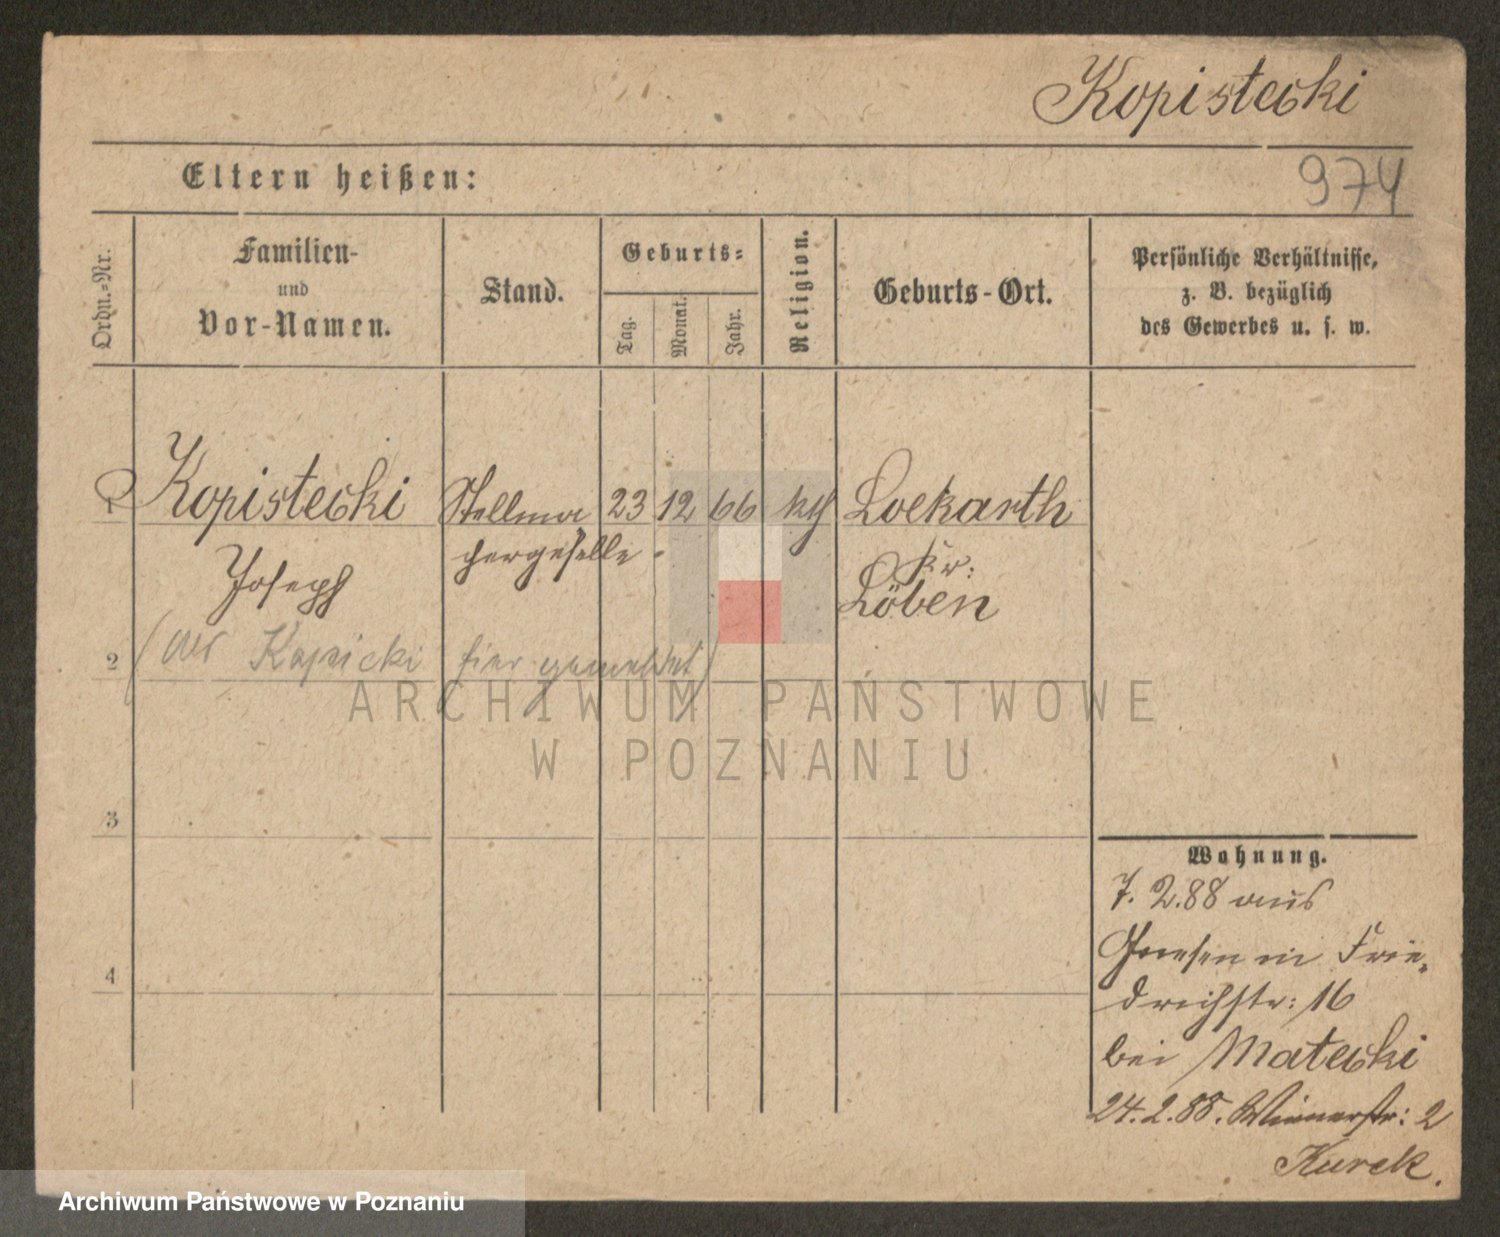 Kopistecki
Eltern heißen:
974
Ordn.-Nr.
Familien-
und
Vor-Namen.
Stand.
Geburts-
Tag.
Monat.
Jahr.
Religion.
Geburts-Ort.
Persönliche Verhältnisse,
z. B. bezüglich
des Gewerbes u. s. w.
1 Kopistecki Stellma 23 12 66 kth Loekarth
chergeselle
Kr:
Joseph Löben
2 (als Kopicki hier gemeldet)
ARCHIWUM PAŃSTWOWE
W POZNANIU
3
4
Wohnung.
7. 2.88 aus
Gnesen in Frie-
drichstr: 16
bei Matecki
24.2.88. Wienerstr: 2
Kurek.
Archiwum Państwowe w Poznaniu